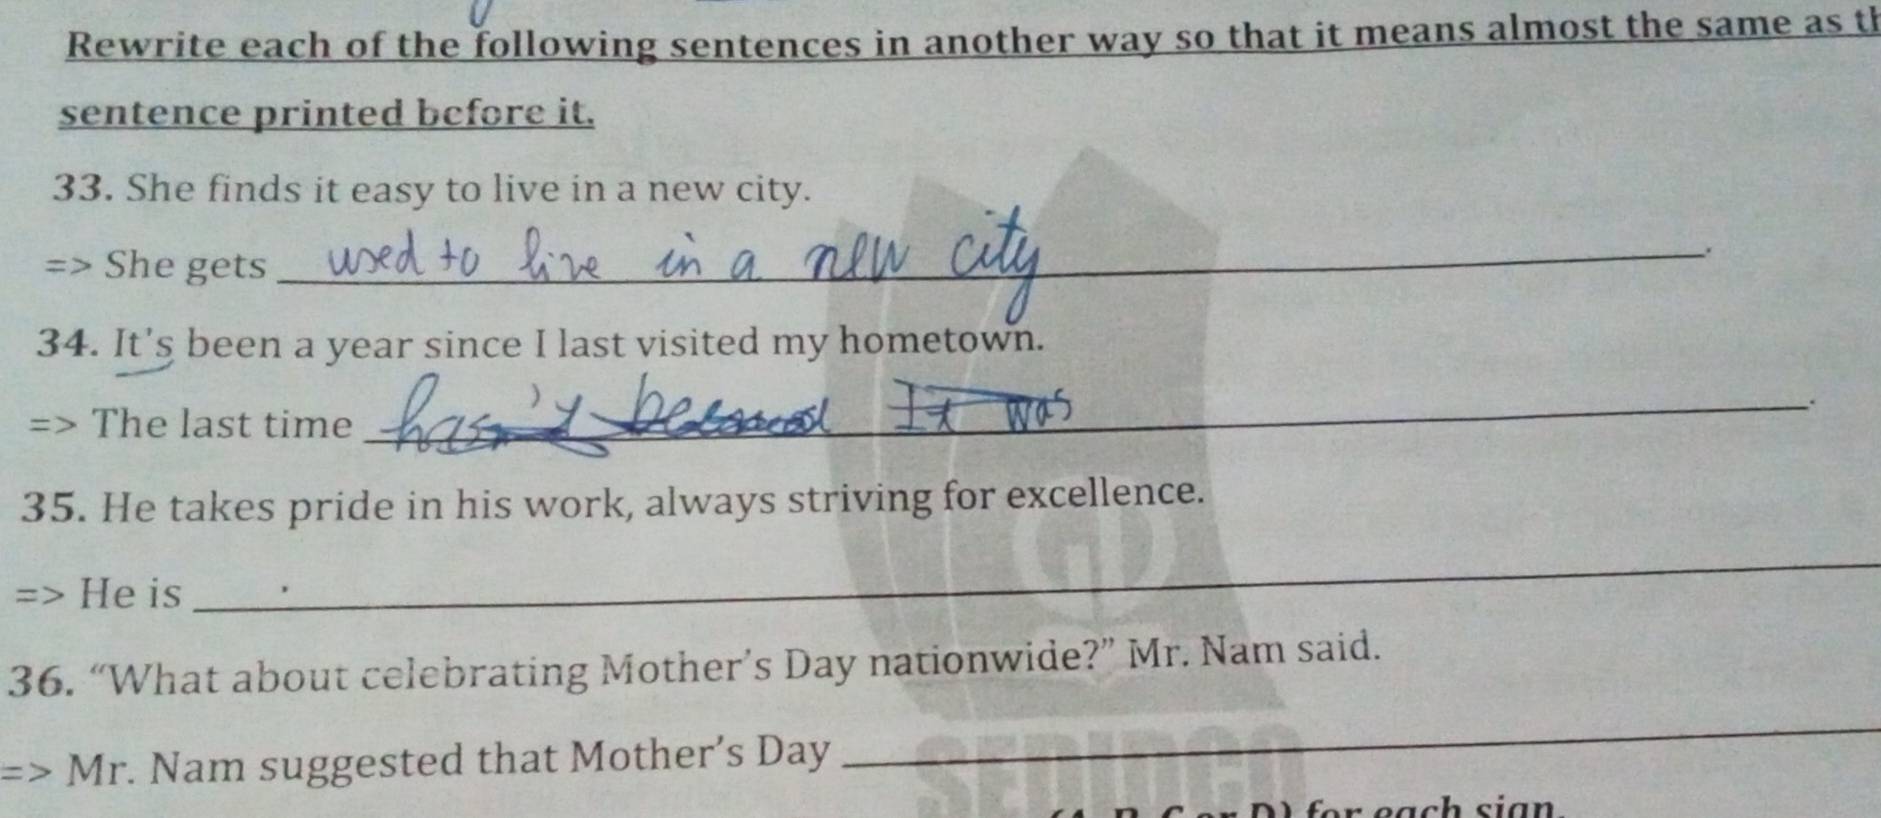 Rewrite each of the following sentences in another way so that it means almost the same as th
sentence printed before it.
33. She finds it easy to live in a new city.
=> She gets used to live in a new city.
34. It's been a year since I last visited my hometown.
=> The last time It was.
35. He takes pride in his work, always striving for excellence.
=> He is
36. “What about celebrating Mother’s Day nationwide?” Mr. Nam said.
=> Mr. Nam suggested that Mother’s Day
SEDIDCO
or D) for each sign.